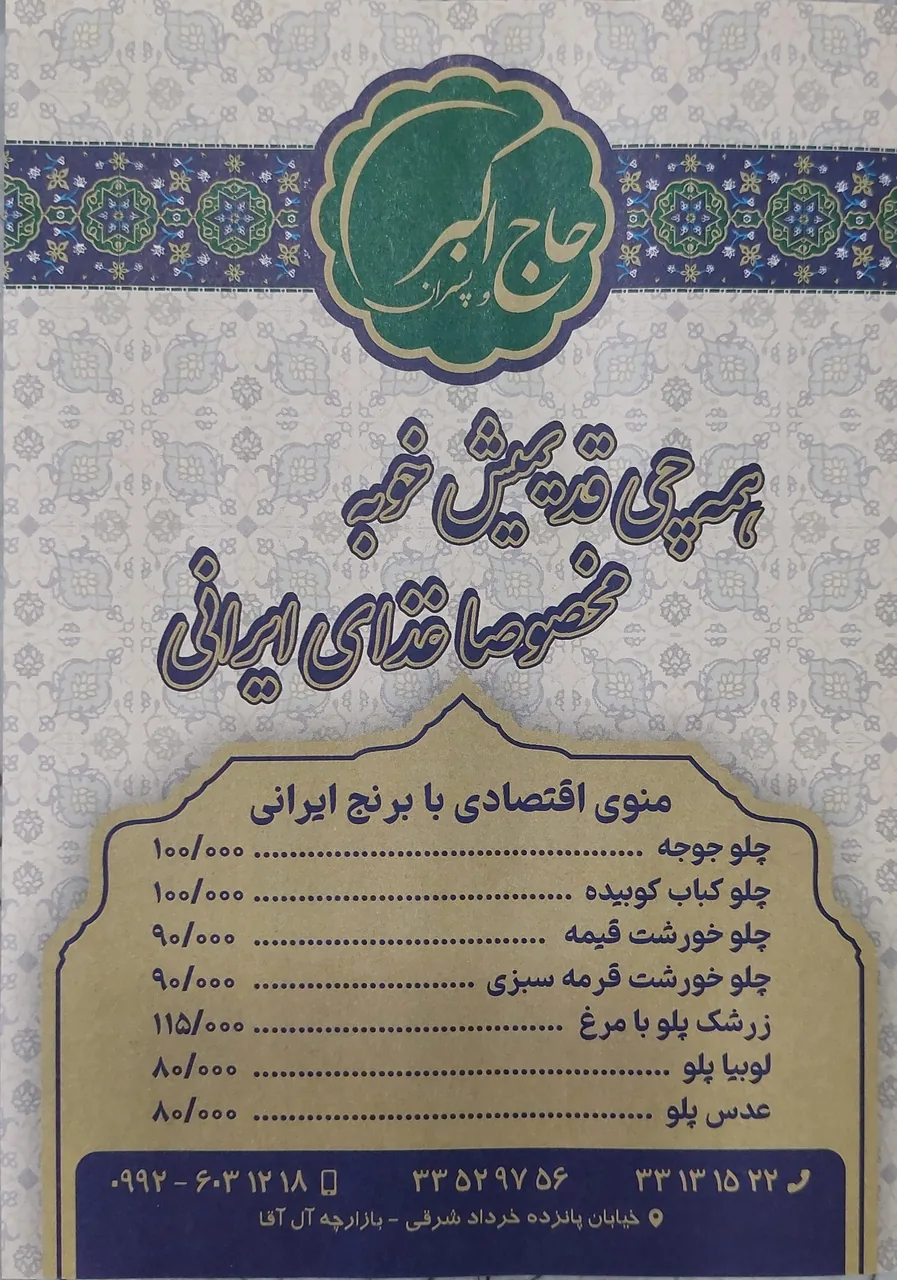 حاج اکبر
و پسران
همه چی قدیمیش خوبه
مخصوصا غذای ایرانی
منوی اقتصادی با برنج ایرانی
چلو جوجه ........................................ ۱۰۰/۰۰۰
چلو کباب کوبیده ................................. ۱۰۰/۰۰۰
چلو خورشت قیمه .............................. ۹۰/۰۰۰
چلو خورشت قرمه سبزی ....................... ۹۰/۰۰۰
زرشک پلو با مرغ ................................ ۱۱۵/۰۰۰
لوبیا پلو ........................................... ۸۰/۰۰۰
عدس پلو ......................................... ۸۰/۰۰۰
۳۳ ۱۳ ۱۵ ۲۲ ۳۳ ۵۲ ۹۷ ۵۶ ۰۹۹۲ - ۶۰۳ ۱۲ ۱۸
خیابان پانزده خرداد شرقی - بازارچه آل آقا